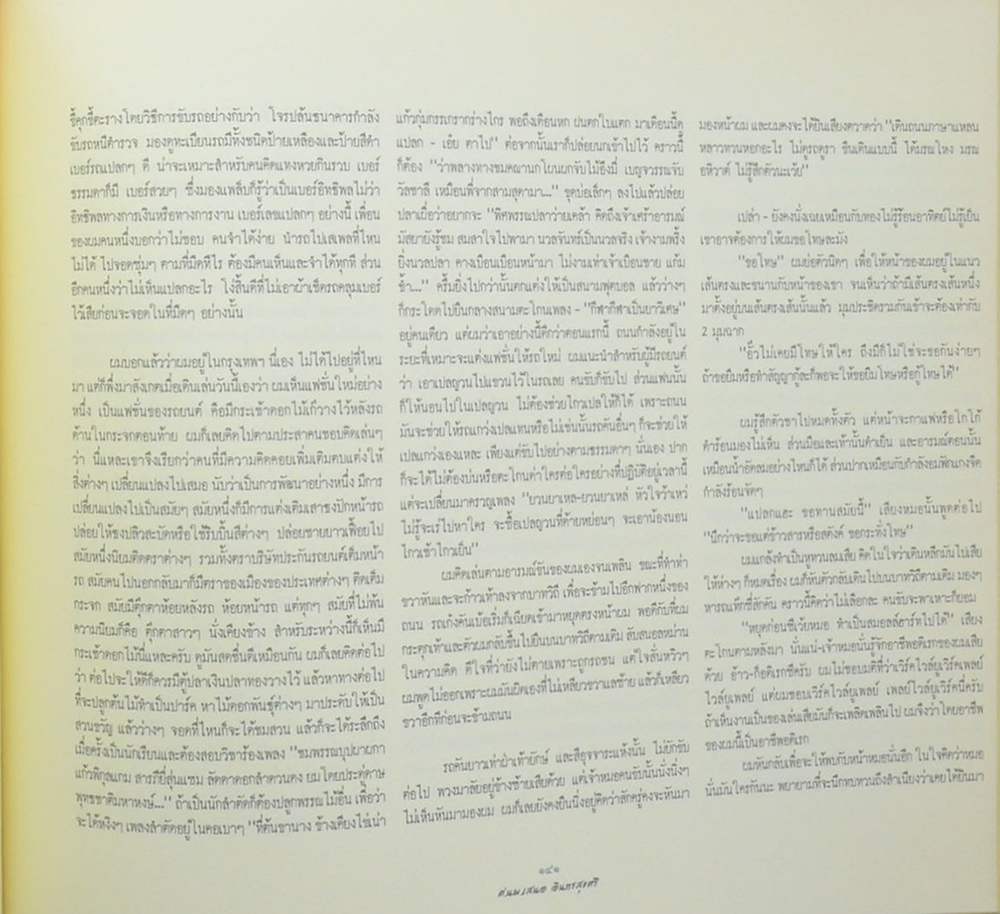 ขี้คุกขี้ตะราง โดยวิธีการขับรถอย่างกับว่า โจรปล้นธนาคารกำลัง
ขับรถหนีตำรวจ มองดูทะเบียนรถมีทั้งชนิดป้ายเหลืองและป้ายสีดำ
เบอร์รถแปลกๆ ดี น่าจะเหมาะสำหรับคนคิดแทงหวยกินรวบ เบอร์
ธรรมดาก็มี เบอร์สวยๆ ซึ่งมองแพล็บก็รู้ว่าเป็นเบอร์อิทธิพลไม่ว่า
อิทธิพลทางการเงินหรือทางการงาน เบอร์เลขแปลกๆ อย่างนี้ เพื่อน
ของผมคนหนึ่งบอกว่าไม่ชอบ คนจำได้ง่าย นำรถไปเสเพลที่ไหน
ไม่ได้ ไปจอดซุ่มๆ ตามที่มืดทีไร ต้องมีคนเห็นและจำได้ทุกที ส่วน
อีกคนหนึ่งว่าไม่เห็นแปลกอะไร โง่สิ้นดีที่ไม่เอาผ้าเช็ดรถคลุมเบอร์
ไว้เสียก่อนจะจอดในที่มืดๆ อย่างนั้น
ผมบอกแล้วว่าผมอยู่ในกรุงเทพฯ นี่เอง ไม่ได้ไปอยู่ที่ไหน
มา แต่ก็พึ่งมาสังเกตเมื่อเดินเล่นวันนี้เองว่า ผมเห็นแฟชั่นใหม่อย่าง
หนึ่ง เป็นแฟชั่นของรถยนต์ คือมีกระเช้าดอกไม้เก๋วางไว้หลังรถ
ด้านในกระจกตอนท้าย ผมก็เลยคิดไปตามประสาคนชอบคิดเล่นๆ
ว่า นี่แหละเขาจึงเรียกว่าคนที่มีความคิดคอยเพิ่มเติมตบแต่งให้
สิ่งต่างๆ เปลี่ยนแปลงไปเสมอ นับว่าเป็นการพัฒนาอย่างหนึ่ง มีการ
เปลี่ยนแปลงไปเป็นสมัยๆ สมัยหนึ่งก็มีการแต่งเติมเสาธงปักหน้ารถ
ปล่อยให้ธงปลิวสะบัดหรือใช้ริบบิ้นสีต่างๆ ปล่อยชายยาวเฟื้อยไป
สมัยหนึ่งนิยมติดตราต่างๆ รวมทั้งตราบริษัทประกันรถยนต์เต็มหน้า
รถ สมัยคนไปนอกกลับมาก็มีตราของเมืองของประเทศต่างๆ ติดเต็ม
กระจก สมัยมีตุ๊กตาห้อยหลังรถ ห้อยหน้ารถ แต่ทุกๆ สมัยที่ไม่พ้น
ความนิยมก็คือ ตุ๊กตาสาวๆ นั่งเคียงข้าง สำหรับระหว่างนี้ก็เห็นมี
กระเช้าดอกไม้นี่แหละครับ ดูมันสดชื่นดีเหมือนกัน ผมก็เลยคิดต่อไป
ว่า ต่อไปจะให้ดีก็ควรมีตู้ปลาเงินปลาทองวางไว้ แล้วหาทางต่อไป
ที่จะปลูกต้นไม้ทำเป็นปาร์ค หาไม้ดอกพันธุ์ต่างๆ มาประดับให้เป็น
สวนขวัญ แล้วว่างๆ จอดที่ไหนก็จะได้ชมสวน แล้วก็จะได้ระลึกถึง
เมื่อครั้งเป็นนักเรียนและต้องสอบวิชาร้องเพลง "ชมพรรณบุปผายกา
แก้วพิกุลแกม สารภียี่สุ่นแซม ลัดดาดอกลำดวนดง ยมโดยประดู่ดาษ
พุทธชาติมหาหงษ์..." ถ้าเป็นนักลำตัดก็ต้องปลูกพรรณไม้อื่น เพื่อว่า
จะได้หงิงๆ เพลงลำตัดอยู่ในคอเบาๆ "ที่ต้นชานาง ข้างเคียงไข่เน่า
แก้วกุ่มกรรเกรากร่างไกร พอถึงเดือนหก ฝนตกใบแตก มาเดือนนี้ดู
แปลก - เอ๋ย ตาไป" ต่อจากนั้นเราก็ปล่อยนกเข้าไปไว้ คราวนี้
ก็ต้อง "ว่าพลางทางชมคณานก โผนผกจับไม้อึงมี่ เบญจวรรณจับ
วัลชาลี เหมือนพี่จากสามสุดามา..." ขุดบ่อเล็กๆ ลงไปแล้วปล่อย
ปลาเผื่อว่าอยากจะ "พิศพรรณปลาว่ายเคล้า คิดถึงเจ้าเศร้าอารมณ์
มัสยายังรู้ชม สมสาใจไปพามา นวลจันทร์เป็นนวลจริง เจ้างามพริ้ง
ยิ่งนวลปลา คางเบือนเบือนหน้ามา ไม่งามเท่าเจ้าเบือนชาย แก้ม
ช้ำ..." ครื้มยิ่งไปกว่านั้นตกแต่งให้เป็นสนามฟุตบอล แล้วว่างๆ
ก็กระโดดไปยืนกลางสนามตะโกนเพลง - "กีฬากีฬาเป็นยาวิเศษ"
อยู่คนเดียว แต่ผมว่าเอาอย่างนี้ดีกว่าตอนแรกนี้ ถนนกำลังอยู่ใน
ระยะที่เหมาะจะแต่งแฟชั่นให้รถใหม่ ผมแนะนำสำหรับผู้มีรถยนต์
ว่า เอาเปลญวนไปแขวนไว้ในรถเลย คนขับก็ขับไป ส่วนแฟนนั้น
ก็ให้นอนไปในเปลญวน ไม่ต้องช่วยไกวเปลให้ก็ได้ เพราะถนน
มันจะช่วยให้รถแกว่งเปลแทนหรือไม่เช่นนั้นรถคันอื่นๆ ก็จะช่วยให้
เปลแกว่งเองแหละ เพียงแต่ขับไปอย่างตามธรรมดาๆ นั่นเอง ปาก
ก็จะได้ไม่ต้องบ่นหรือตะโกนด่าใครต่อใครอย่างที่ปฏิบัติอยู่เวลานี้
แต่จะเปลี่ยนมาครวญเพลง "ยวนยาเหล-ยวนยาเหล่ หัวใจว้าเหว่
ไม่รู้จะเร่ไปหาใคร จะซื้อเปลญวนที่ด้ายหย่อนๆ จะเอาน้องนอน
ไกวเช้าไกวเย็น"
ผมคิดเล่นตามอารมณ์ขันของผมเองจนเพลิน ขณะที่ทำท่า
ขวาหันและจะก้าวเท้าลงจากบาทวิถี เพื่อจะข้ามไปอีกฟากหนึ่งของ
ถนน รถเก๋งคันเบ้อเริ่มก็เฉียดเข้ามาหยุดตรงหน้าผม พอดีกับที่ผม
กระตุกเท้าและตัวผมกลับขึ้นไปยืนบนบาทวิถีตามเดิม สับสนอลหม่าน
ในความคิด ดีใจที่ว่ายังไม่ตายเพราะถูกรถชน แต่ใจสั่นหวิวๆ
ผมพูดไม่ออกเพราะผมมันผิดเองที่ไม่เหลียวขวาแลซ้าย แล้วก็เหลียว
ขวาอีกทีก่อนจะข้ามถนน
รถคันยาวเท่าฝ่าเท้ายักษ์ และสีอุจจาระแห้งนั้น ไม่ยักขับ
ต่อไป พวงมาลัยอยู่ข้างซ้ายเสียด้วย แต่เจ้าหมอคนขับนั้นนั่งนิ่งๆ
ไม่เห็นหันมามองผม ผมก็เลยยังคงยืนนิ่งอยู่คิดว่าสักครู่คงจะหันมา
มองหน้าผม และผมคงจะได้ยินเสียงตวาดว่า "เดินถนนภาษาแหลน
หลาวทวนหอกอะไร ไม่ดูรถดูรา ขืนเดินแบบนี้ ได้มรณโหง มรณ
อหิวาต์ ไม่รู้สึกตัวนะเว้ย"
เปล่า - ยังคงนิ่งเฉยเหมือนกับทองไม่รู้ร้อนอาทิตย์ไม่รู้เย็น
เขาอาจต้องการให้ผมขอโทษละมัง
"ขอโทษ" ผมย่อตัวนิดๆ เพื่อให้หน้าของผมอยู่ในแนว
เส้นตรงและขนานกับหน้าของเขา จนเห็นว่าถ้ามีเส้นตรงเส้นหนึ่ง
มาตั้งอยู่บนเส้นตรงเส้นนั้นแล้ว มุมประชิดรวมกันเข้าจะต้องเท่ากับ
2 มุมฉาก
"อั๊วไม่เคยมีโทษให้ใคร ถึงมีก็ไม่ใช่จะขอกันง่ายๆ
ถ้าขอยืมหรือทำสัญญากู้ละก็พอจะ ให้ขอยืมโทษหรือกู้โทษได้"
ผมรู้สึกตัวชาไปหมดทั้งตัว แต่หน้าจะกาแฟหรือโกโก้
ดำร้อนมองไม่เห็น ส่วนมือและเท้านั้นดำเย็น และอารมณ์ตอนนั้น
เหมือนน้ำอัดลมอย่างไหนก็ได้ ส่วนปากเหมือนกับกำลังอมฟักแกงจืด
กำลังร้อนจัดๆ
"แปลกแฮะ ขอทานสมัยนี้" เสียงหมอนั่นพูดต่อไป
"นึกว่าจะขอแต่ข้าวสารหรือสตังค์ ขอกระทั่งโทษ"
ผมแกล้งทำเป็นหูทวนลมเสีย คิดในใจว่าเดินหลีกมันไปเสีย
ให้ห่างๆ ก็หมดเรื่อง ผมก็หันตัวกลับเดินไปบนบาทวิถีตามเดิม มองๆ
หารถแท็กซี่สักคัน คราวนี้คิดว่าไม่เลือกละ คนขับจะพาเหาะก็ยอม
"หยุดก่อนซีเว้ยหมอ ทำเป็นสมอลล์ฮาร์ทไปได้" เสียง
ตะโกนตามหลังมา นั่นแน่-เจ้าหมอนั่นรู้จักอาชีพอดิเรกของผมเสีย
ด้วย อ้าว-ก็อดิเรกซีครับ ผมไม่ชอบมติที่ว่าเวิร์คไวล์ยูเวิร์คเพลย์
ไวล์ยูเพลย์ แต่ผมชอบเวิร์คไวล์ยูเพลย์ เพลย์ไวล์ยูเวิร์คนี่ครับ
ถ้าเห็นงานเป็นของเล่นเสียมันก็จะเพลิดเพลินไป ผมจึงว่าโดยอาชีพ
ของผมนี้เป็นอาชีพอดิเรก
ผมหันกลับเพื่อจะให้พบกับหน้าหมอนั่นอีก ในใจคิดว่าหมอ
นั่นมันใครกันนะ พยายามที่จะนึกทบทวนถึงสำเนียงว่าเคยได้ยินมา
๑๔๑